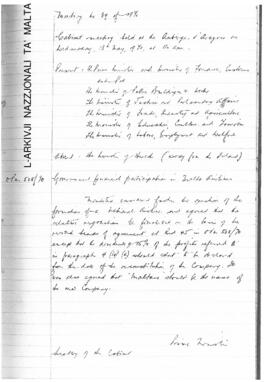 L-ARKIVJI NAZZJONALI TA' MALTA
Cabinet meeting held at the Auberge d'Aragon on
Wednesday, 13th May, 1970, at 10 a.m.
Present: The Prime Minister and Minister of Finance, Customs
and Port
The Minister of Public Building & Works
The Minister of Justice and Parliamentary Affairs
The Minister of Trade, Industry and Agriculture
The Minister of Education, Culture and Tourism
The Minister of Labour, Employment and Welfare
Absent: The Minister of Health (away from the Island)
Government financial participation in Malta Airlines
Ministers considered further the question of the
formation of a National Airline and agreed that the
relative negotiations be finalised on the basis of the
revised heads of agreement at
except that the dividends
in paragraph 4 should be declared
from the date of the reconstitution of the Company. It
was also agreed that "Maltair" should be the name of
the new Company.
Prime Minister
Secretary of the Cabinet